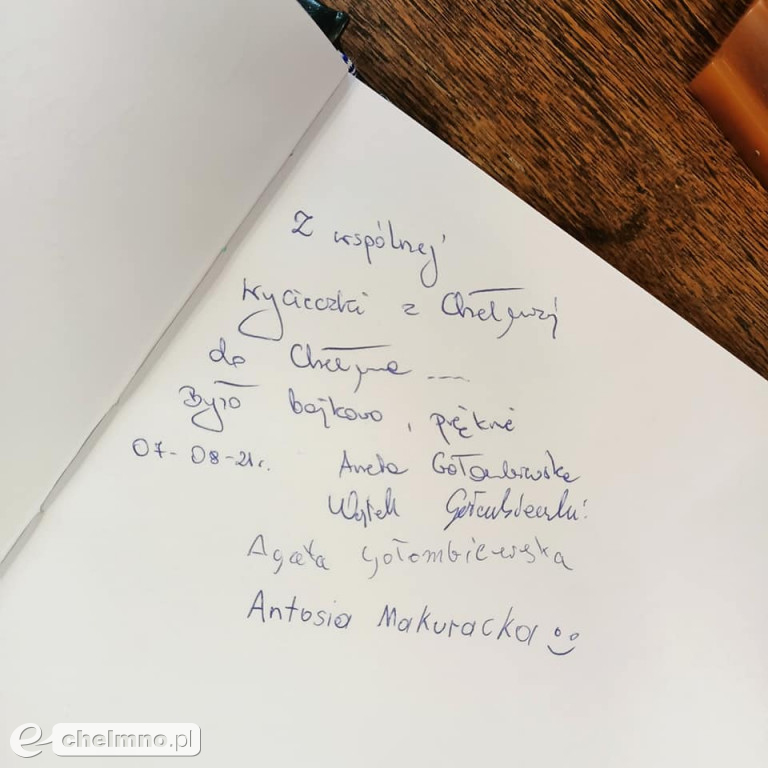 Z wspólnej
wycieczki z Chełmży
do Chełmna ....
Było bajkowo, pięknie
07-08-21r. Aneta Gołombiewska
Wojtek Gołembiewski
Agata Gołombiewska
Antosia Makuracka
e-chelmno.pl